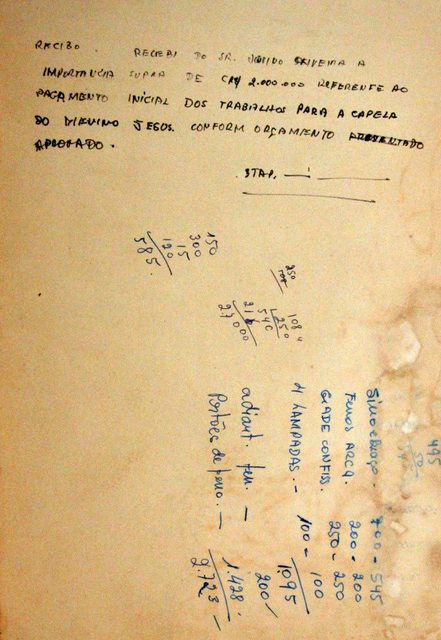 RECIBO. RECEBI DO SR. OVIDIO SKIVEIRA A
IMPORTANCIA SUPRA DE CR$ 2.000.000 REFERENTE AO
PAGAMENTO INICIAL DOS TRABALHOS PARA A CAPELA
DO MENINO JESUS. CONFORM ORÇAMENTO APRESENTADO
APROVADO.
ITAP.
150
300
15
120
585.
250
108
540 250
216
27000
495
50
Sino e braço - 700 - 545
Fenos ARCQ. 200 - 200
GRADE CONFISS. 250 - 250
4 LAMPADAS. - 100 - 100
1095
adiant. fen. - 200
Portões de feno. - 1.428
2.723